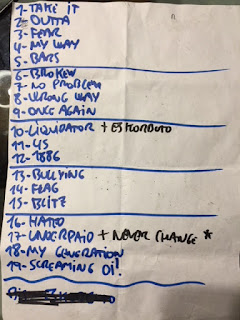 1- TAKE IT
2- OUTTA
3- FEAR
4- MY WAY
5- BARS
6- BROKEN
7- NO PROBLEM
8- WRONG WAY
9- ONCE AGAIN
10- LIQUIDATOR + ESKORBUTO
11- 45
12- 1886
13- BULLYING
14- FLAG
15- BLITZ
16- HATED
17- UNDERPAID + NEVER CHANGE *
18- MY GENERATION
19- SCREAMING OI!